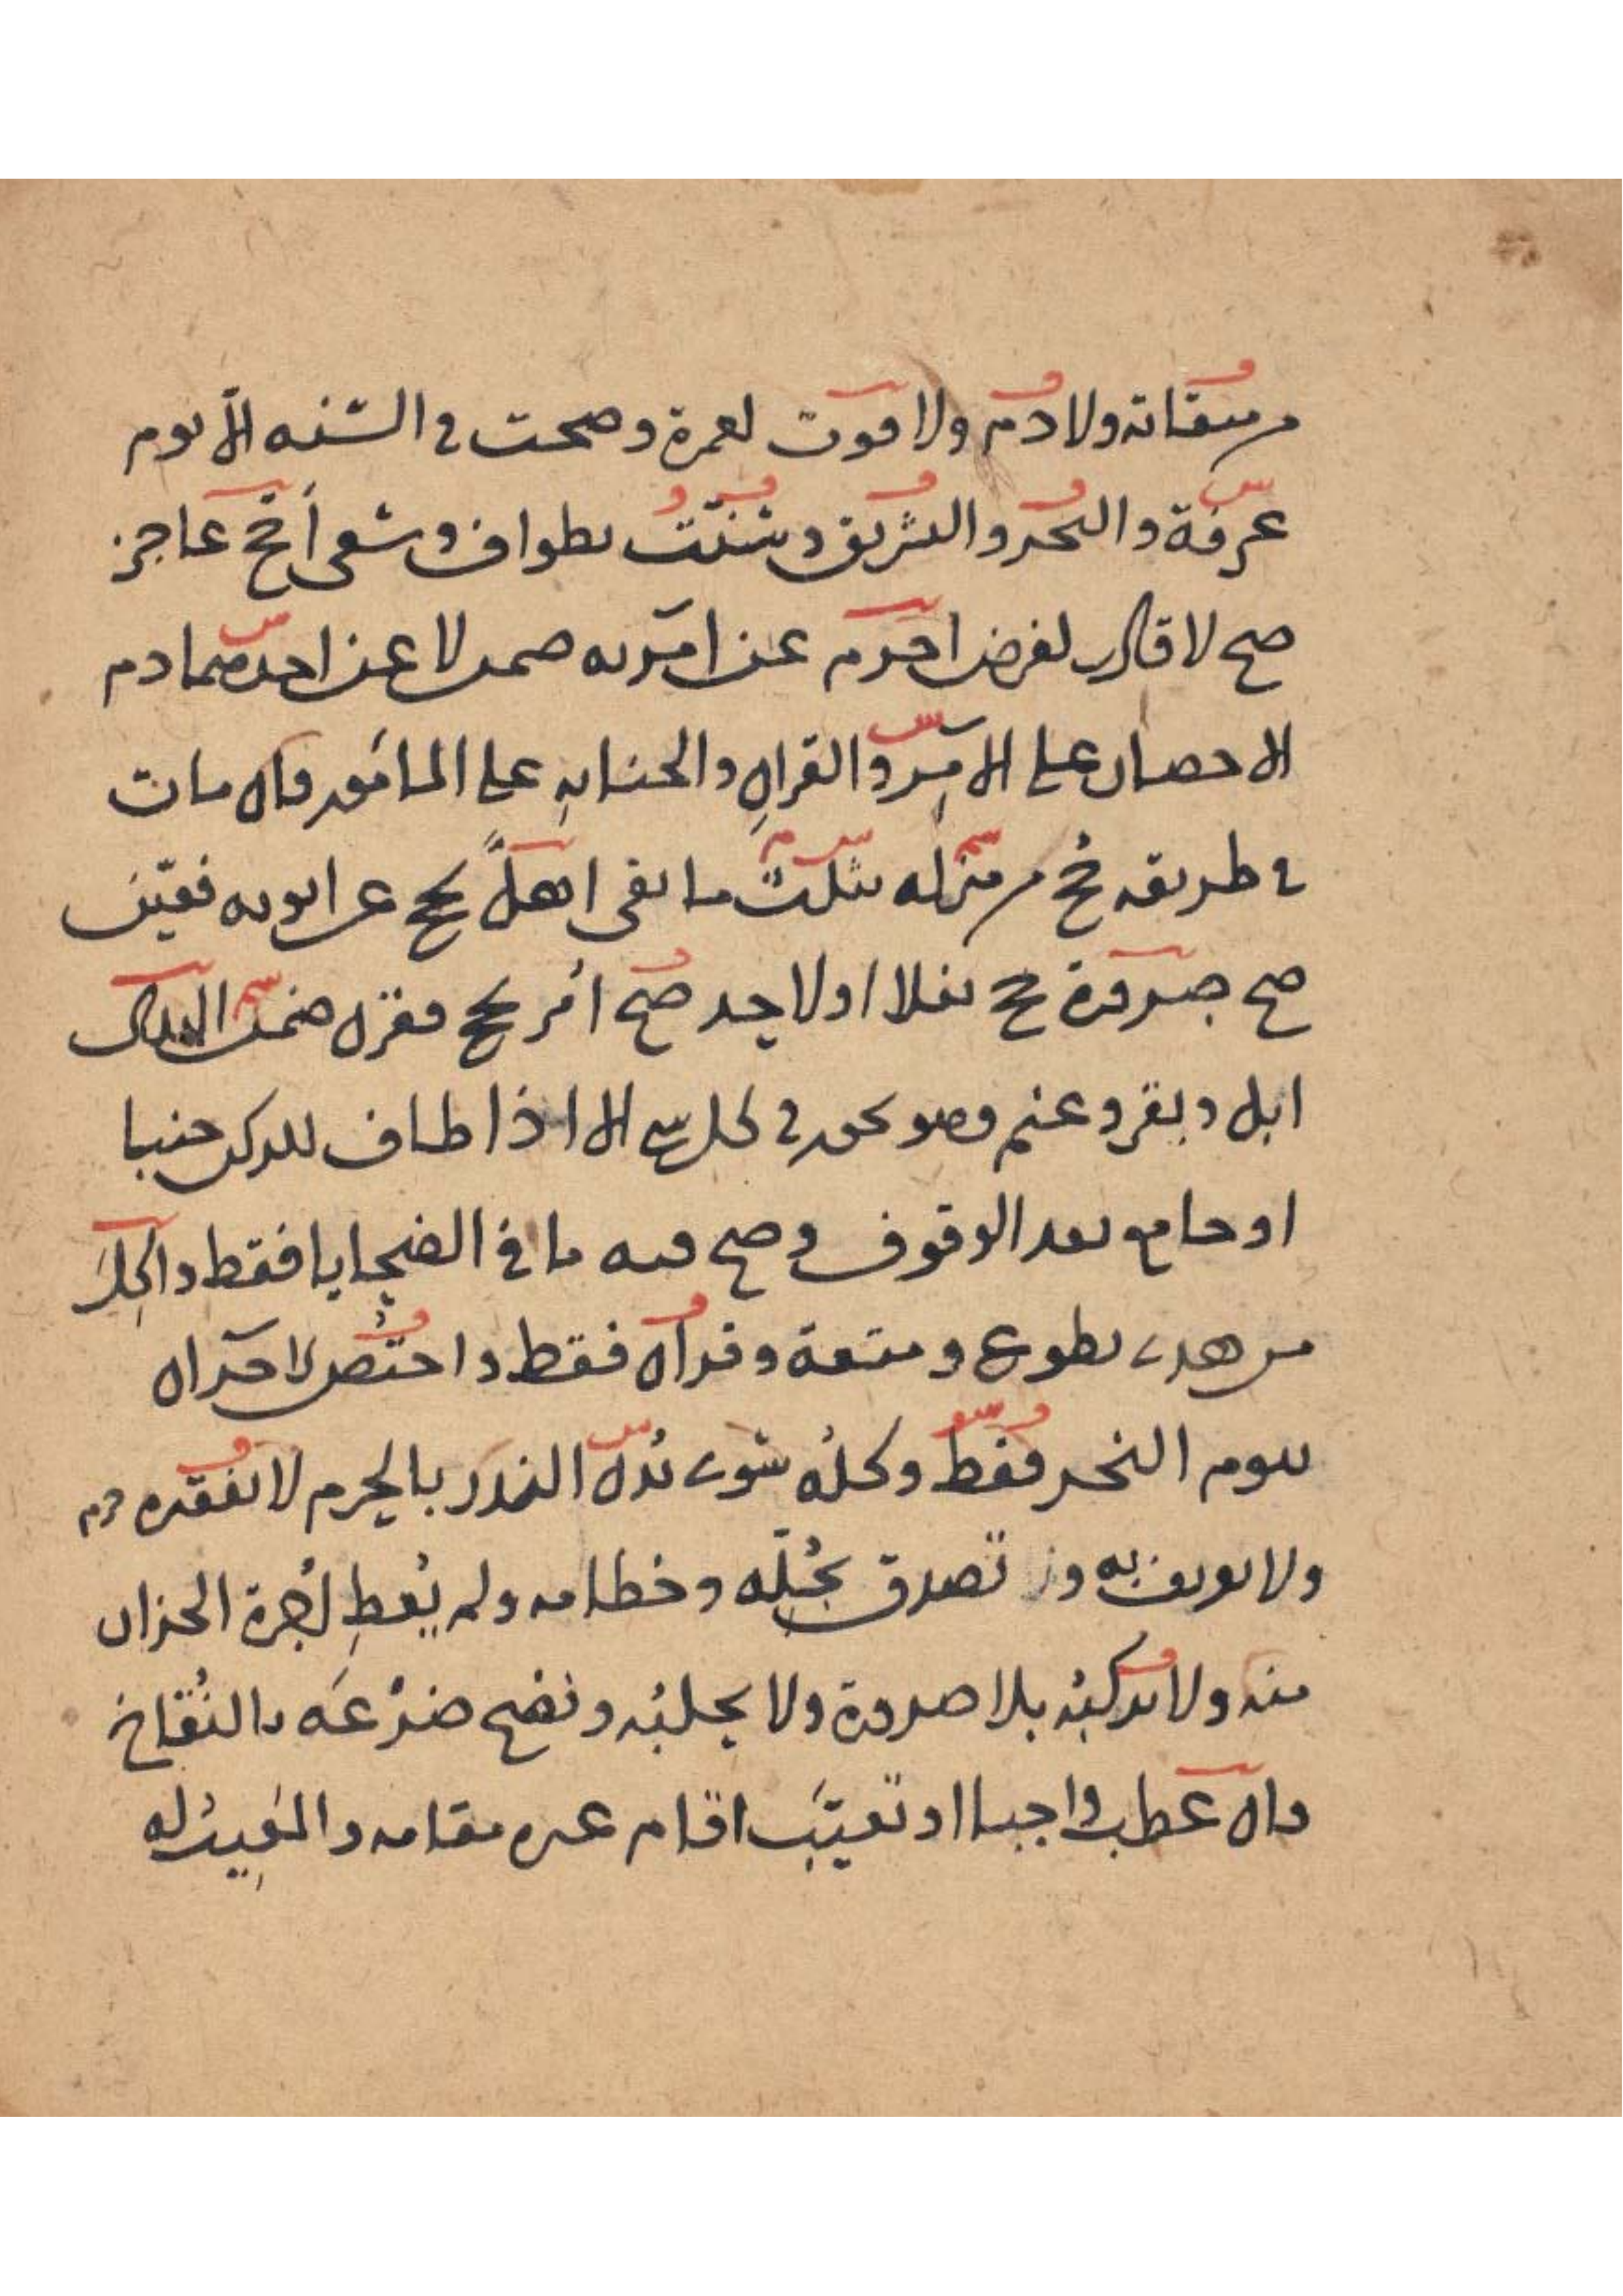 من ميقاته ولا دم ولا فوت لعمرة وصحت في السنة الا يوم
عرفة والنحر والتشريق وسنت بطواف وسعى أحج عاجز
صح لا قادر لفرض احرم عن امريه ضمن لا عن احدهما دم
الاحصار على الامر والقران والجناية على المامور فان مات
في طريقه حج من منزله بثلث ما بقى اهل بحج عن ابويه فعين
صح صرورة حج نفلا او لاحد صح أمر بحج فقرن ضمن الهدى
ابل وبقر وغنم وهو يجوز في كل شي الا اذا طاف للركن جنبا
او جامع بعد الوقوف وصح فيه ما في الضحايا فقط والكل
من هدى تطوع ومتعة وقران فقط واختص لاخران
بيوم النحر فقط وكله سوى بدن النذر بالحرم لا بفقره دم
ولا يعرف به تصدق بجله وخطامه ولم يعط اجرة الجزار
منه ولا يركبه بلا ضرورة ولا يحلبه ونضح ضرعه بالنقاخ
وان عطب واجبا او تعيب اقام غيره مقامه والمعيب له